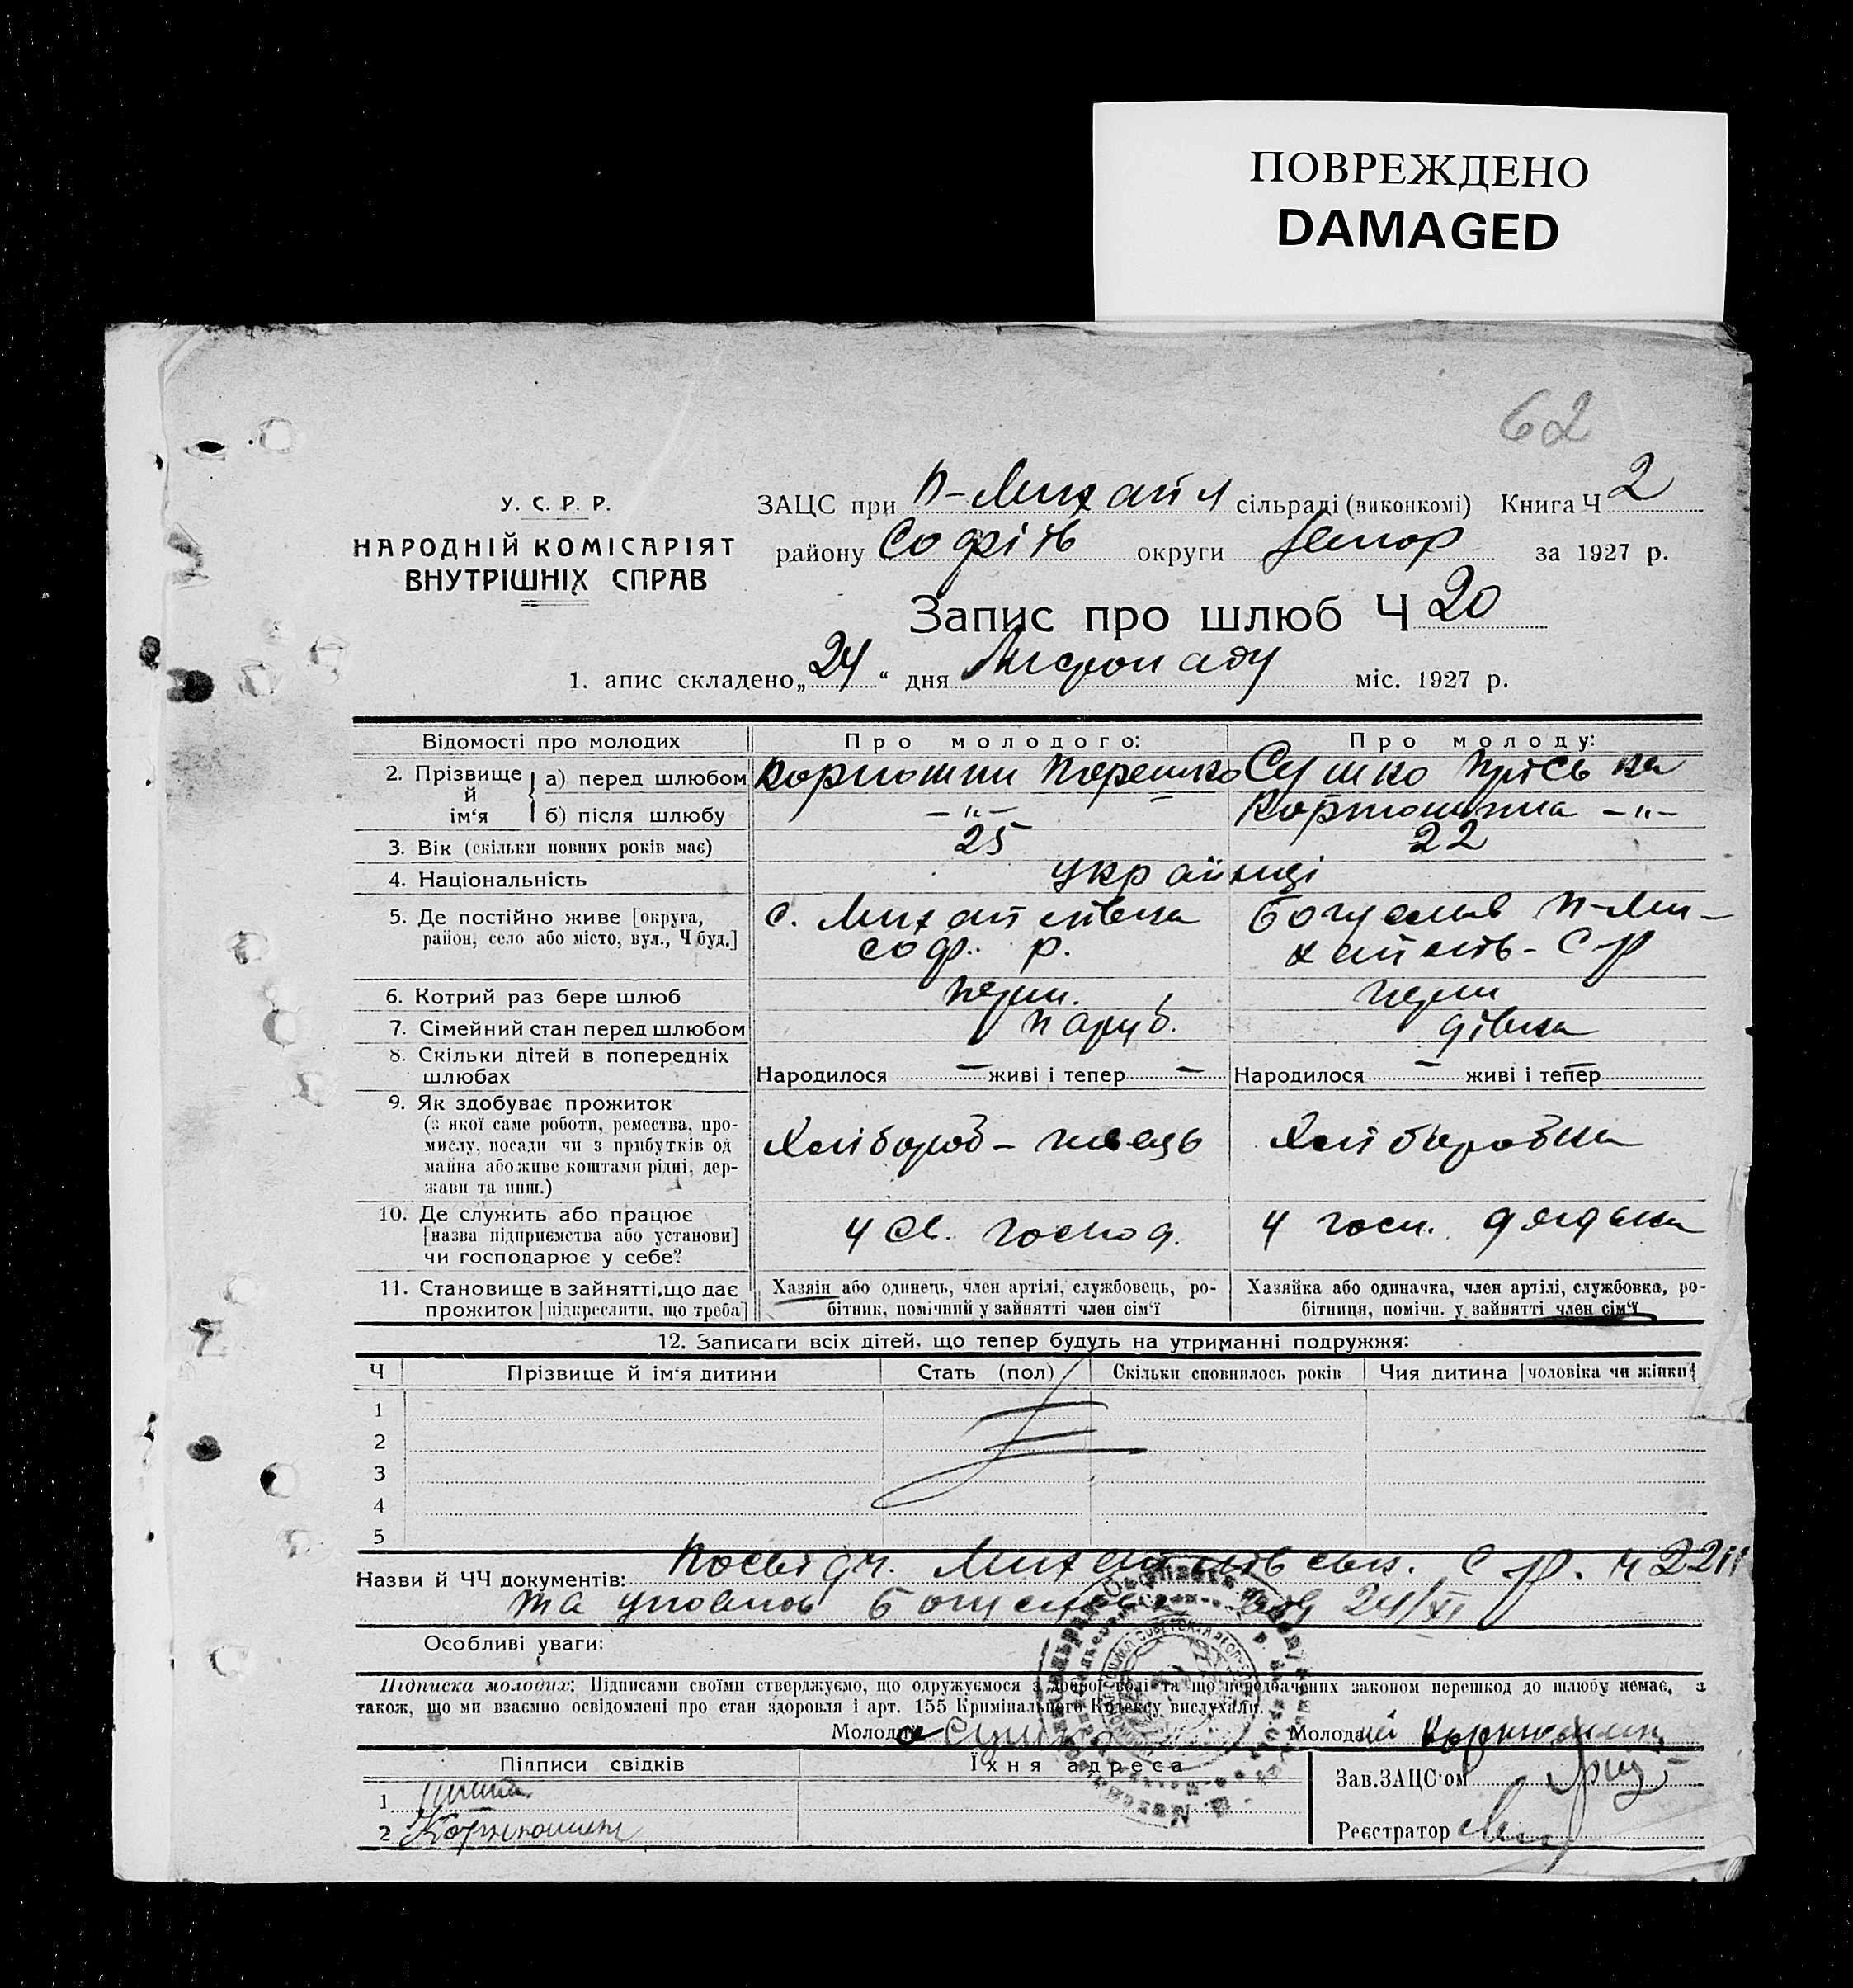 ПОВРЕЖДЕНО
DAMAGED
62
У. С. Р. Р.
НАРОДНІЙ КОМІСАРІЯТ
ВНУТРІШНІХ СПРАВ
ЗАЦС при Н-Михайл сільраді (виконкомі) Книга Ч 2
району Софіїв округи за 1927 р.
Запис про шлюб Ч 20
1. апис складено „24“ дня Листопаду міс. 1927 р.
Відомості про молодих Про молодого: Про молоду:
2. Прізвище й ім‘я а) перед шлюбом Сушко
б) після шлюбу — „ — — „ —
3. Вік (скільки повних років має) 25 22
4. Національність українці
5. Де постійно живе [округа, район, село або місто, вул., Ч буд.] с. Михайлівка Соф. р.
6. Котрий раз бере шлюб перш. перш
7. Сімейний стан перед шлюбом паруб. дівка
8. Скільки дітей в попередніх шлюбах Народилося — живі і тепер — Народилося — живі і тепер —
9. Як здобуває прожиток
(з якої саме роботи, ремества, про-
мислу, посади чи з прибутків од
майна або живе коштами рідні, дер-
жави та инш.) Хлібороб- Хліборобка
10. Де служить або працює
[назва підприємства або установи]
чи господарює у себе? у св. господ. у госп. дядька
11. Становище в зайнятті, що дає
прожиток [підкреслити, що треба]
Хазяін або одинець, член артілі, службовець, ро-
бітник, помічний у зайнятті член сім‘ї
Хазяйка або одиначка, член артілі, службовка, ро-
бітниця, помічн. у зайнятті член сім‘ї
12. Записати всіх дітей, що тепер будуть на утриманні подружжя:
Ч Прізвище й ім‘я дитини Стать (пол) Скільки сповнилось років Чия дитина [чоловіка чи жінки]
1
2
3
4
5
Назви й ЧЧ документів: Посвідч. Михайлівськ. С/р. ч
та 24/XI
Особливі уваги:
Підписка молодих: Підписами своїми стверджуємо, що одружуємося з доброї волі та що передбачених законом перешкод до шлюбу немає, а
також, що ми взаємно освідомлені про стан здоровля і арт. 155 Кримінального Кодексу вислухали.
Молода Сушко Молодий
Підписи свідків Їхня адреса
1
2
Зав.ЗАЦС‘ом
Реєстратор